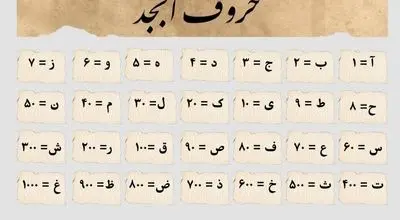 حروف ابجد
آ = ۱ ب = ۲ ج = ۳ د = ۴ ه = ۵ و = ۶ ز = ۷
ح= ۸ ط = ۹ ی = ۱۰ ک = ۲۰ ل= ۳۰ م = ۴۰ ن = ۵۰
س = ۶۰ ع = ۷۰ ف = ۸۰ ص = ۹۰ ق= ۱۰۰ ر= ۲۰۰ ش= ۳۰۰
ت = ۴۰۰ ث = ۵۰۰ خ = ۶۰۰ ذ = ۷۰۰ ض = ۸۰۰ ظ= ۹۰۰ غ = ۱۰۰۰